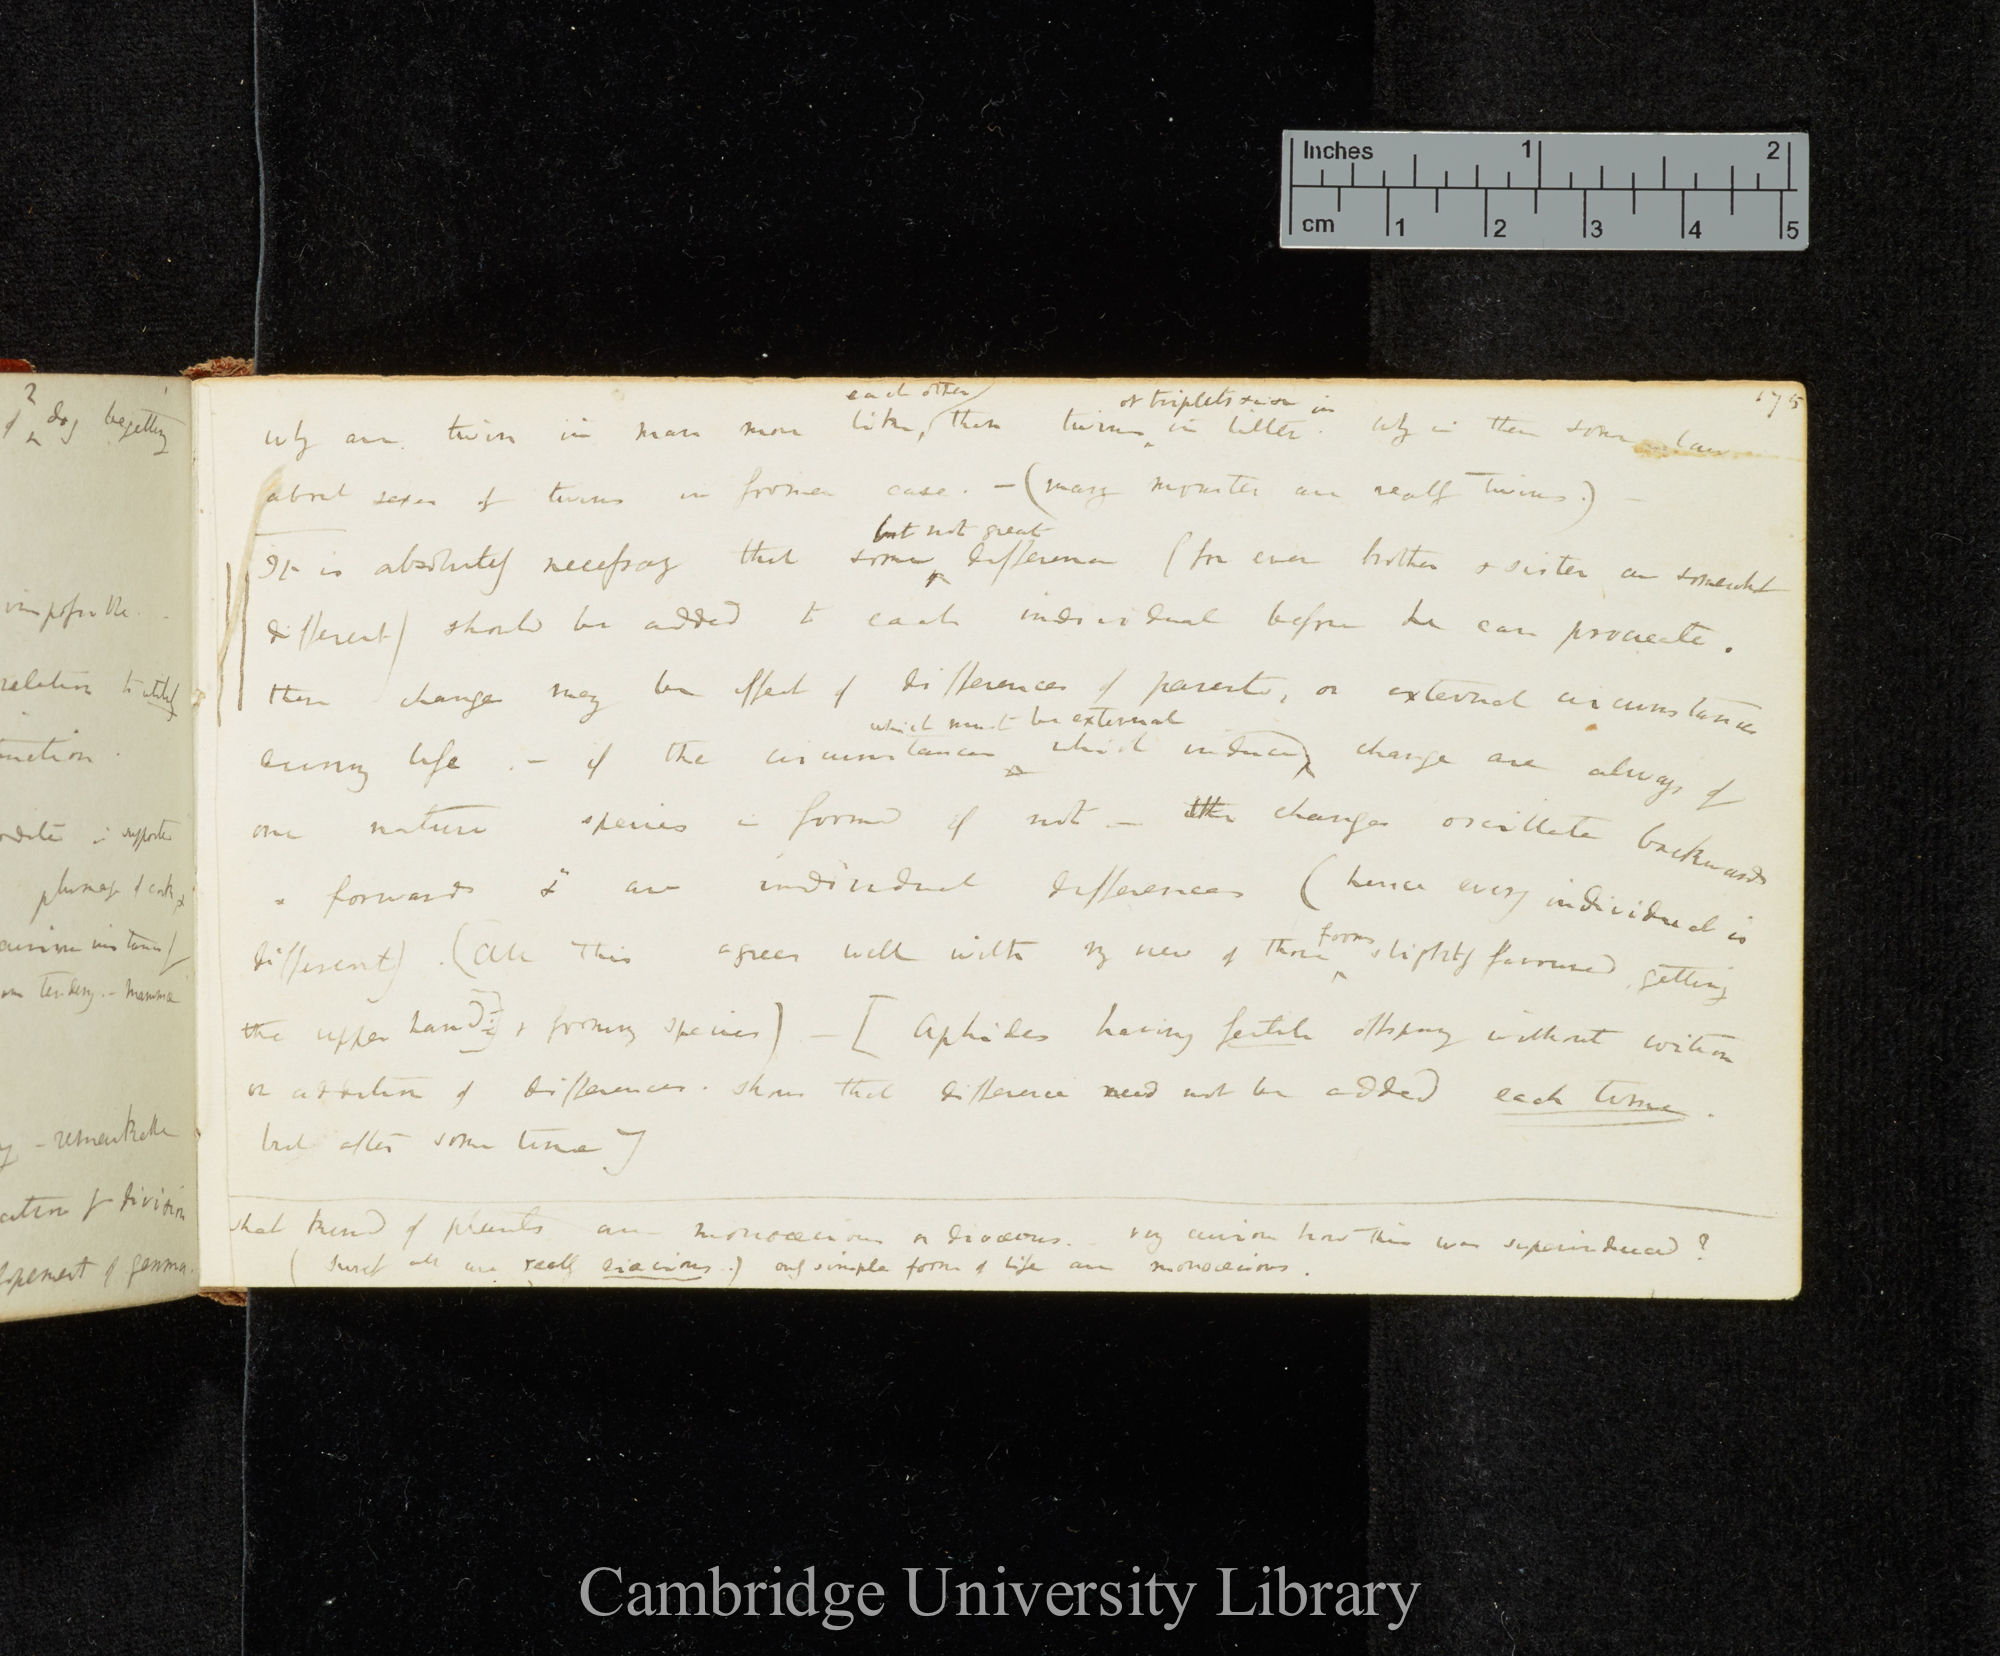 175
each other
or triplets &c &c in
Why are twins in man more like, than twins in litter. Why is there some law
about sexes of twins in former case. — (many monster are really twins.) —
but not great
It is absolutely necessary that some difference (for even brother & sister are somewhat
different) should be added to each individual before he can procreate.
then change may be effect of differences of parents, or external circumstances
during life. — if the circumstances which must be external
which induce change are always of
one nature species is formed if not — the changes oscillate backwards
& forwards & are individual differences (hence every individual is
different). (All this agrees well with my view of those forms slightly favoured getting
the upper hand & forming species) — [Aphides having fertile offspring without coition
or addition of differences. shows that difference need not be added each time.
but after some time]
What kind of plants are monoecious or dioecious. very curious how this was superinduced?
(Surely all are really diœcious.) only simple form of life are monoœcious.
dog begetting
impossible.
relation to utility
plumage of cock
tendency. — mammæ
— remarkable
division
gemma.
Inches 1 2
cm 1 2 3 4 5
Cambridge University Library